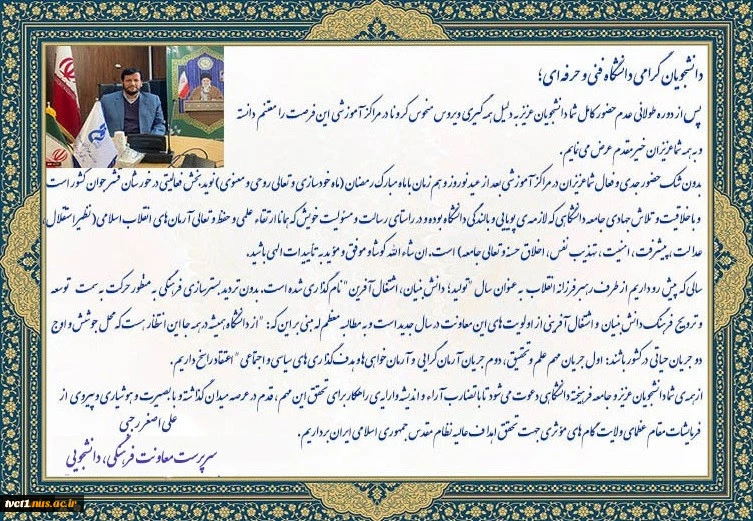 دانشجویان گرامی دانشگاه فنی و حرفه ای؛
پس از دوره طولانی عدم حضور کامل شما دانشجویان عزیز به دلیل همه گیری ویروس منحوس کرونا در مراکز آموزشی این فرصت را مغتنم دانسته
و به همه شما عزیزان خیرمقدم عرض می نمایم.
بدون شک حضور جدی و فعال شما عزیزان در مراکز آموزشی بعد از عید نوروز و هم زمان با ماه مبارک رمضان (ماه خودسازی و تعالی روحی و معنوی) نویدبخش فعالیتی درخور شان قشر جوان کشور است
و با خلاقیت و تلاش جهادی جامعه دانشگاهی که لازمه ی پویایی و بالندگی دانشگاه بوده و در راستای رسالت و مسئولیت خویش که همانا ارتقاء علمی و حفظ و تعالی آرمان های انقلاب اسلامی (نظیر استقلال،
عدالت، پیشرفت، امنیت، تهذیب نفس، اخلاق حسنه و تعالی جامعه) است. ان شاء الله کوشا و موفق و مؤید به تأییدات الهی باشید.
سالی که پیش رو داریم از طرف رهبر فرزانه انقلاب به عنوان سال "تولید؛ دانش بنیان، اشتغال آفرین" نام گذاری شده است. بدون تردید بسترسازی فرهنگی به منظور حرکت به سمت توسعه
و ترویج فرهنگ دانش بنیان و اشتغال آفرینی از اولویت های این معاونت در سال جدید است و به مطالبه معظم له مبنی بر این که: "از دانشگاه همیشه در همه جا این انتظار هست که محل جوشش و اوج
دو جریان حیاتی در کشور باشند: اول جریان مهم علم و تحقیق، دوم جریان آرمان گرایی و آرمان خواهی ها و هدف گذاری های سیاسی و اجتماعی" اعتقاد راسخ داریم.
از همه ی شما دانشجویان عزیز و جامعه فرهیخته دانشگاهی دعوت می شود تا با تضارب آراء و اندیشه و ارایه ی راهکار برای تحقق این مهم، قدم در عرصه میدان گذاشته و با بصیرت و هوشیاری و پیروی از
فرمایشات مقام عظمای ولایت گام های مؤثری جهت تحقق اهداف عالیه نظام مقدس جمهوری اسلامی ایران برداریم.
علی اصغر رجبی
سرپرست معاونت فرهنگی، دانشجویی
tvct1.nus.ac.ir